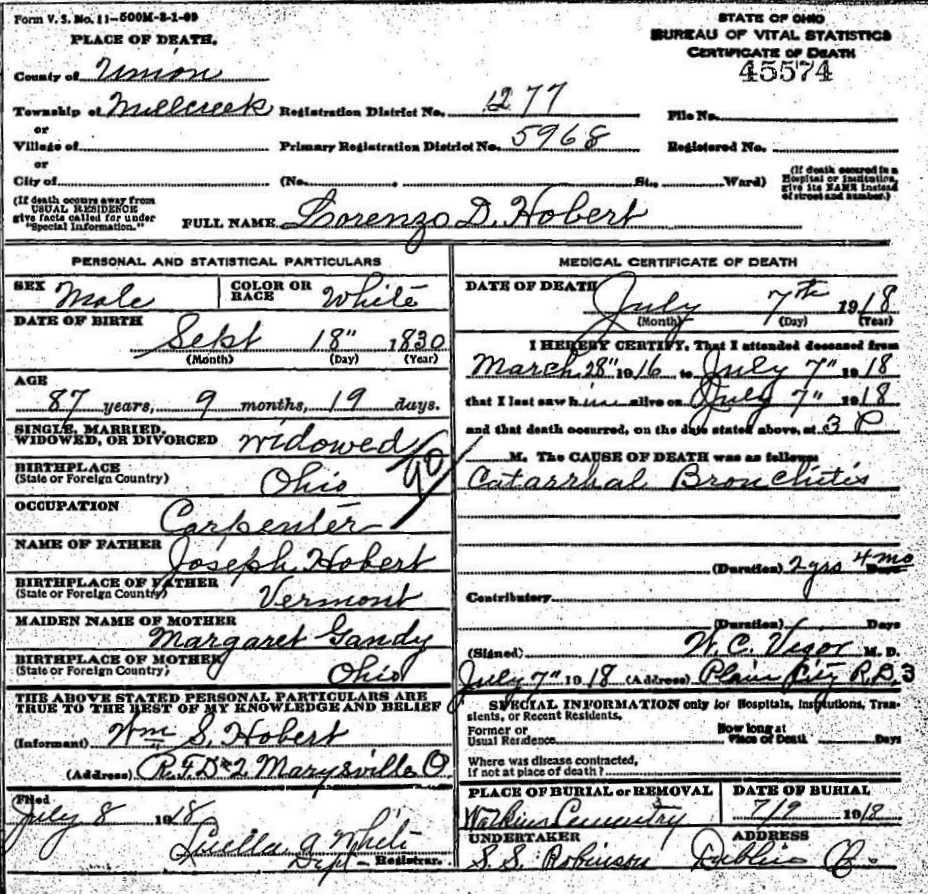 Form V. S. No. 11-500M-2-1-09
STATE OF OHIO
BUREAU OF VITAL STATISTICS
CERTIFICATE OF DEATH
45574
PLACE OF DEATH.
County of Union
Township of Millcreek Registration District No. 1277 File No.
or
Village of Primary Registration District No. 5968 Registered No.
or
City of (No. , St., Ward) (If death occured in a Hospital or Institution, give its NAME instead of street and number.)
(If death occurs away from USUAL RESIDENCE give facts called for under "Special Information.")
FULL NAME Lorenzo D. Hobert
PERSONAL AND STATISTICAL PARTICULARS
SEX Male COLOR OR RACE White
DATE OF BIRTH
Sept 18" 1830
(Month) (Day) (Year)
AGE
87 years, 9 months, 19 days.
SINGLE, MARRIED, WIDOWED, OR DIVORCED widowed
90
BIRTHPLACE
(State or Foreign Country) Ohio
OCCUPATION
Carpenter
NAME OF FATHER Joseph Hobert
BIRTHPLACE OF FATHER
(State or Foreign Country) Vermont
MAIDEN NAME OF MOTHER
Margaret Gandy
BIRTHPLACE OF MOTHER
(State or Foreign Country) Ohio
THE ABOVE STATED PERSONAL PARTICULARS ARE
TRUE TO THE BEST OF MY KNOWLEDGE AND BELIEF
(Informant) Wm S. Hobert
(Address) R.F.D #2 Marysville O
Filed
July 8 1918
Luella A White
Dept- Registrar.
MEDICAL CERTIFICATE OF DEATH
DATE OF DEATH July 7th 1918
(Month) (Day) (Year)
I HEREBY CERTIFY, That I attended deceased from
March 28" 1916 to July 7" 1918
that I last saw him alive on July 7" 1918
and that death occurred, on the date stated above, at 3 P
M. The CAUSE OF DEATH was as follows
Catarrhal Bronchitis
(Duration) 2 yrs 4 mo Days
Contributory
(Duration) Days
(Signed) W. C. Vigor M. D.
July 7" 1918 (Address) Plain City R.D. 3
SPECIAL INFORMATION only for Hospitals, Institutions, Transients, or Recent Residents,
Former or Usual Residence How long at Place of Death Days
Where was disease contracted,
if not at place of death?
PLACE OF BURIAL or REMOVAL DATE OF BURIAL
Watkins Cemetry 7/9 1918
UNDERTAKER ADDRESS
S. S. Robinson Dublin O.